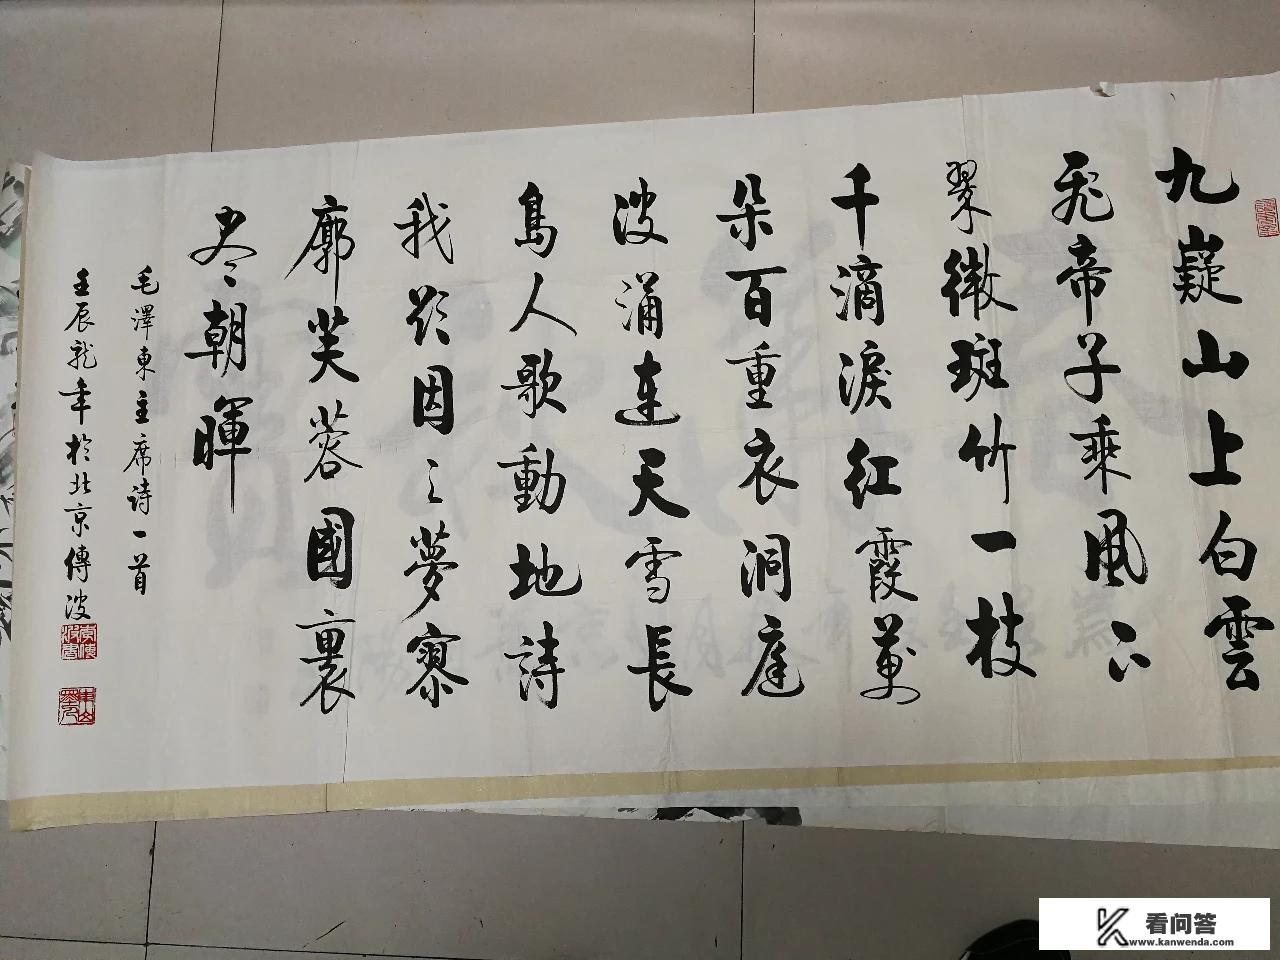 九嶷山上白雲
飛帝子乘風下
翠微斑竹一枝
千滴淚紅霞萬
朵百重衣洞庭
波涌連天雪長
島人歌動地詩
我欲因之夢寥
廓芙蓉國裏
尽朝暉
毛澤東主席詩一首
壬辰龍年於北京傳波
看问答
www.kanwenda.com